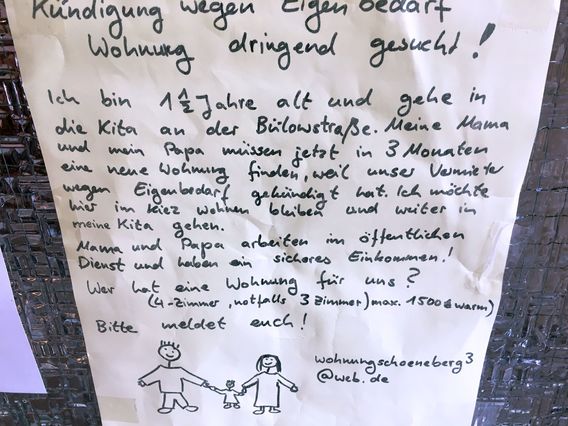 Kündigung wegen Eigenbedarf
Wohnung dringend gesucht!
Ich bin 1 1/2 Jahre alt und gehe in
die Kita an der Bülowstraße. Meine Mama
und mein Papa müssen jetzt in 3 Monaten
eine neue Wohnung finden, weil unser Vermieter
wegen Eigenbedarf gekündigt hat. Ich möchte
hier im Kiez wohnen bleiben und weiter in
meine Kita gehen.
Mama und Papa arbeiten im öffentlichen
Dienst und haben ein sicheres Einkommen!
Wer hat eine Wohnung für uns?
(4-Zimmer, notfalls 3 Zimmer) max. 1500€ warm)
Bitte meldet euch!
wohnungschoeneberg3
@web.de